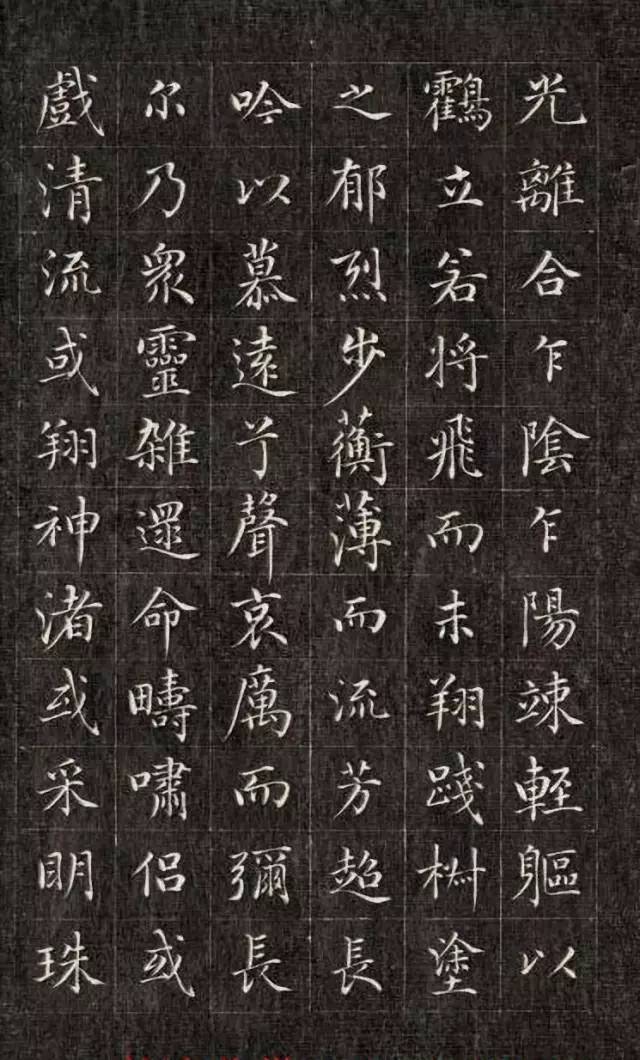 光離合乍陰乍陽竦輕軀以
鸖立若將飛而未翔踐椒塗
之郁烈步蘅薄而流芳超長
吟以慕遠兮聲哀厲而彌長
尔乃眾靈雜遝命疇嘯侶或
戲清流或翔神渚或采明珠